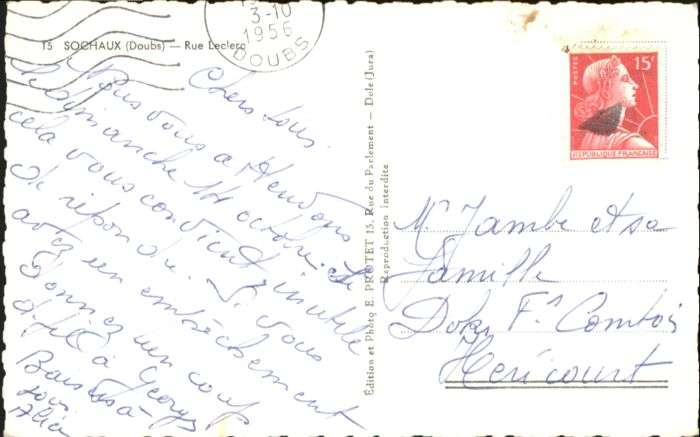 15 SOCHAUX (Doubs) — Rue Leclerc
3-10
1956
DOUBS
Chers tous
Nous vous attendons
le dimanche 14 octobre. Si
cela vous convient inutile
de répondre. Si vous
avez un empêchement
donnez un coup
de fil à Georges
Baisers à
tous
Alice
Édition et Photo E. PROTET 15, Rue du Parlement — Dole (Jura)
Reproduction interdite
POSTES
15F
RÉPUBLIQUE FRANÇAISE
Mr Jambe et sa
famille
F. Comtois
Héricourt